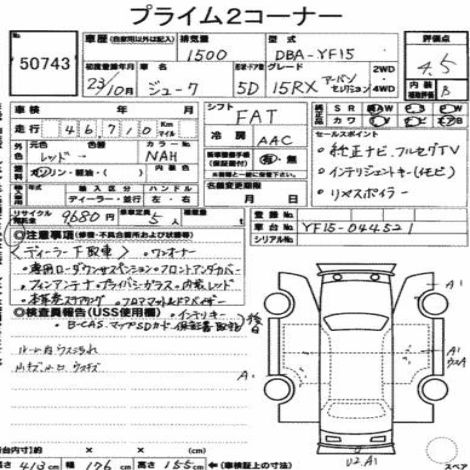 プライム2コーナー
50743
車歴 (自家用以外は記入) 排気量 型式 評価点
1500 DBA-YF15 4.5
初度登録年月 車名 形状・ドア数 グレード 2WD 4WD
23/10月 ジューク 5D 15RX アーバンセレクション
内装 B
車検 年 月 シフト FAT
走行 46710 Km マイル
冷房 AAC
外色 レッド 色替 カラーNo. NAH
ガソリン・軽油・( )
輸入区分 ハンドル
ディーラー・並行 左・右
名義変更期限 月 日
リサイクル 9680円 乗車定員 5人 積載量 t
セールスポイント
・純正ナビ、フルセグTV
・インテリジェントキー(イモビ)
・リヤスポイラー
登録No.
車台No. YF15-044521
シリアルNo.
◎注意事項(修復・不具合箇所および状態等)
<ディーラー下取車> ・ワンオーナー
・専用ローダウンサスペンション・フロントアンダーカバー
・フィンアンテナ・プライバシーガラス・内装レッド
・本革巻ステアリング・フロアマット&ドアバイザー
◎検査員報告(USS使用欄) ・インテリキー
・B-CAS、マップSDカード、保証書、取説 後日
ルーム内ウスヨゴレ
A1
A1
A1
A1
U2.A1
長さ 413 cm 幅 176 cm 高さ 155 cm (車検証上の寸法)